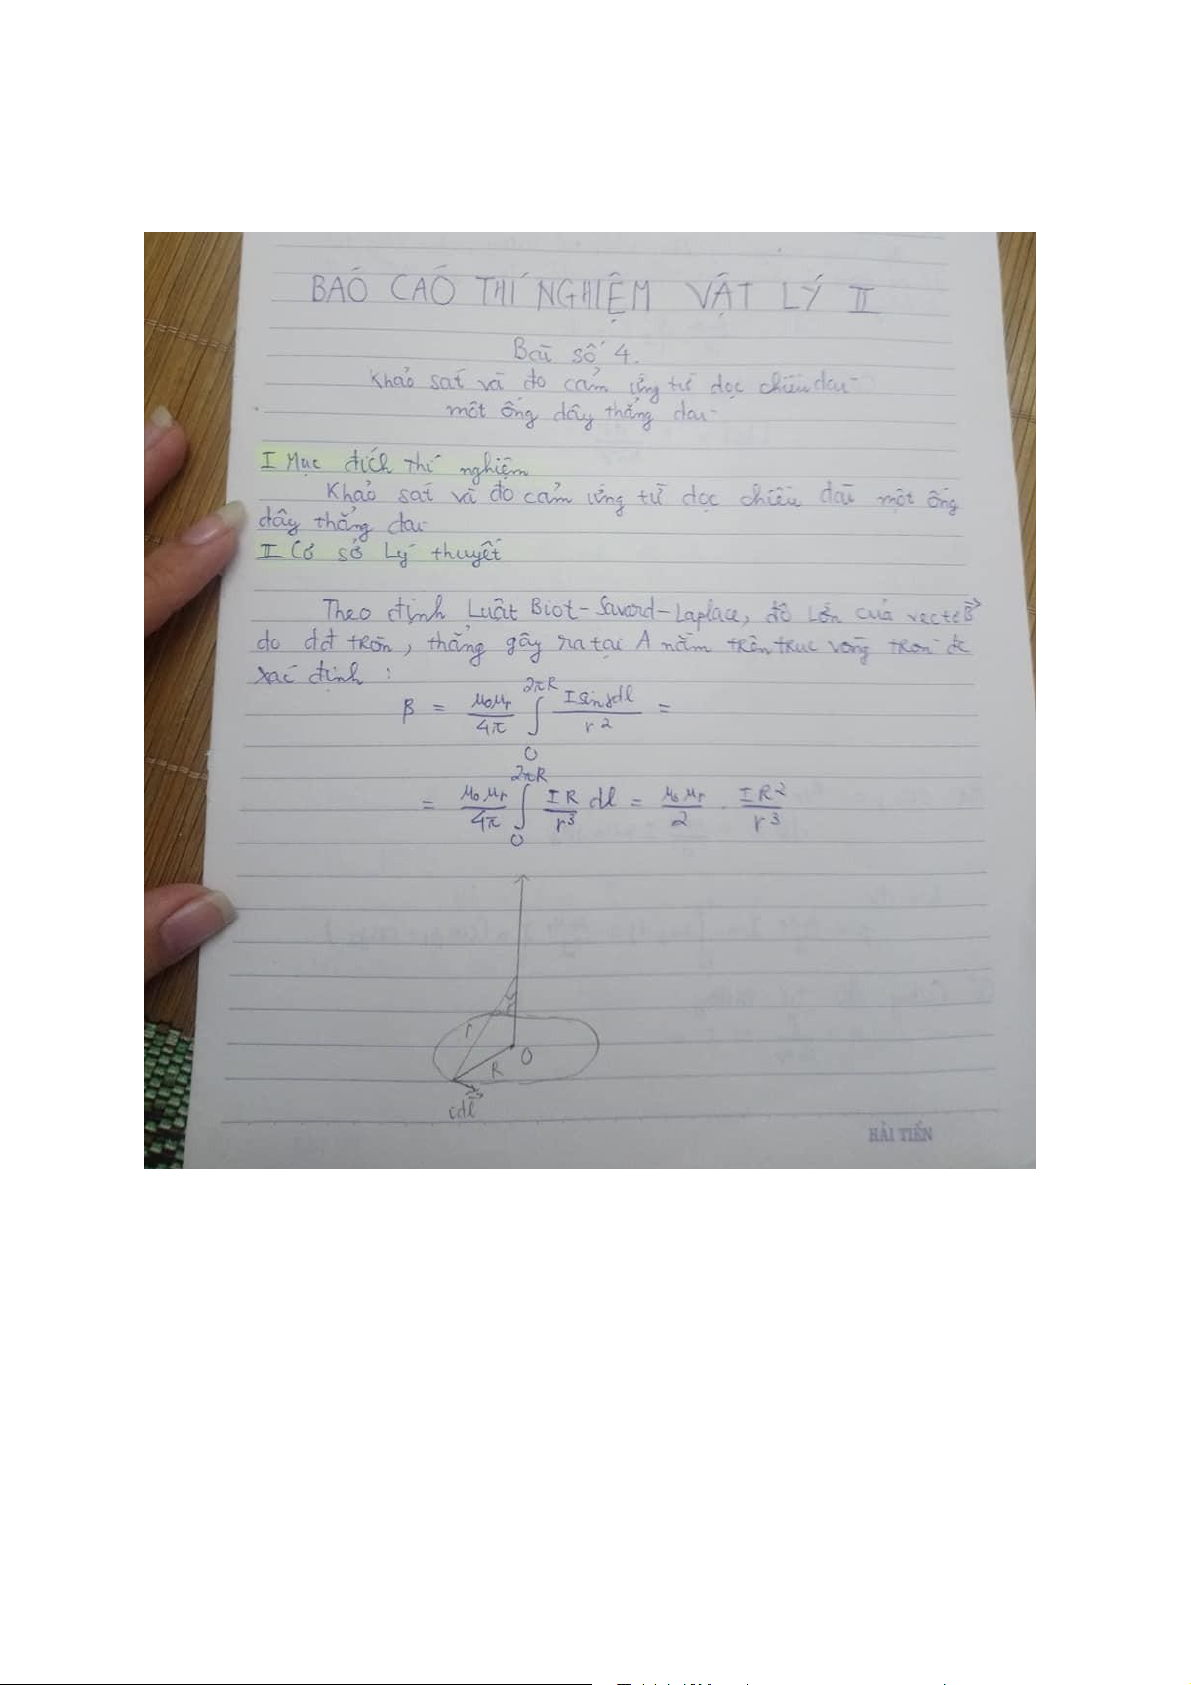 BÁO CÁO THÍ NGHIỆM VẬT LÝ II
Bài số 4.
Khảo sát và đo cảm ứng từ dọc chiều dài
một ống dây thẳng dài
I Mục đích thí nghiệm
Khảo sát và đo cảm ứng từ dọc chiều dài một ống
dây thẳng dài
II Cơ sở Lý thuyết
Theo định Luật Biot-Savard-Laplace, độ lớn của vectơ B⃗
do dđ tròn, thẳng gây ra tại A nằm trên trục vòng tròn đc
xác định :
B = μ₀μᵣ/4π ∫₀^2πR I sinγdl/r² =
= μ₀μᵣ/4π ∫₀^2πR IR/r³ dl = μ₀μᵣ/2 . IR²/r³
r
O
R
HẢI TIẾN